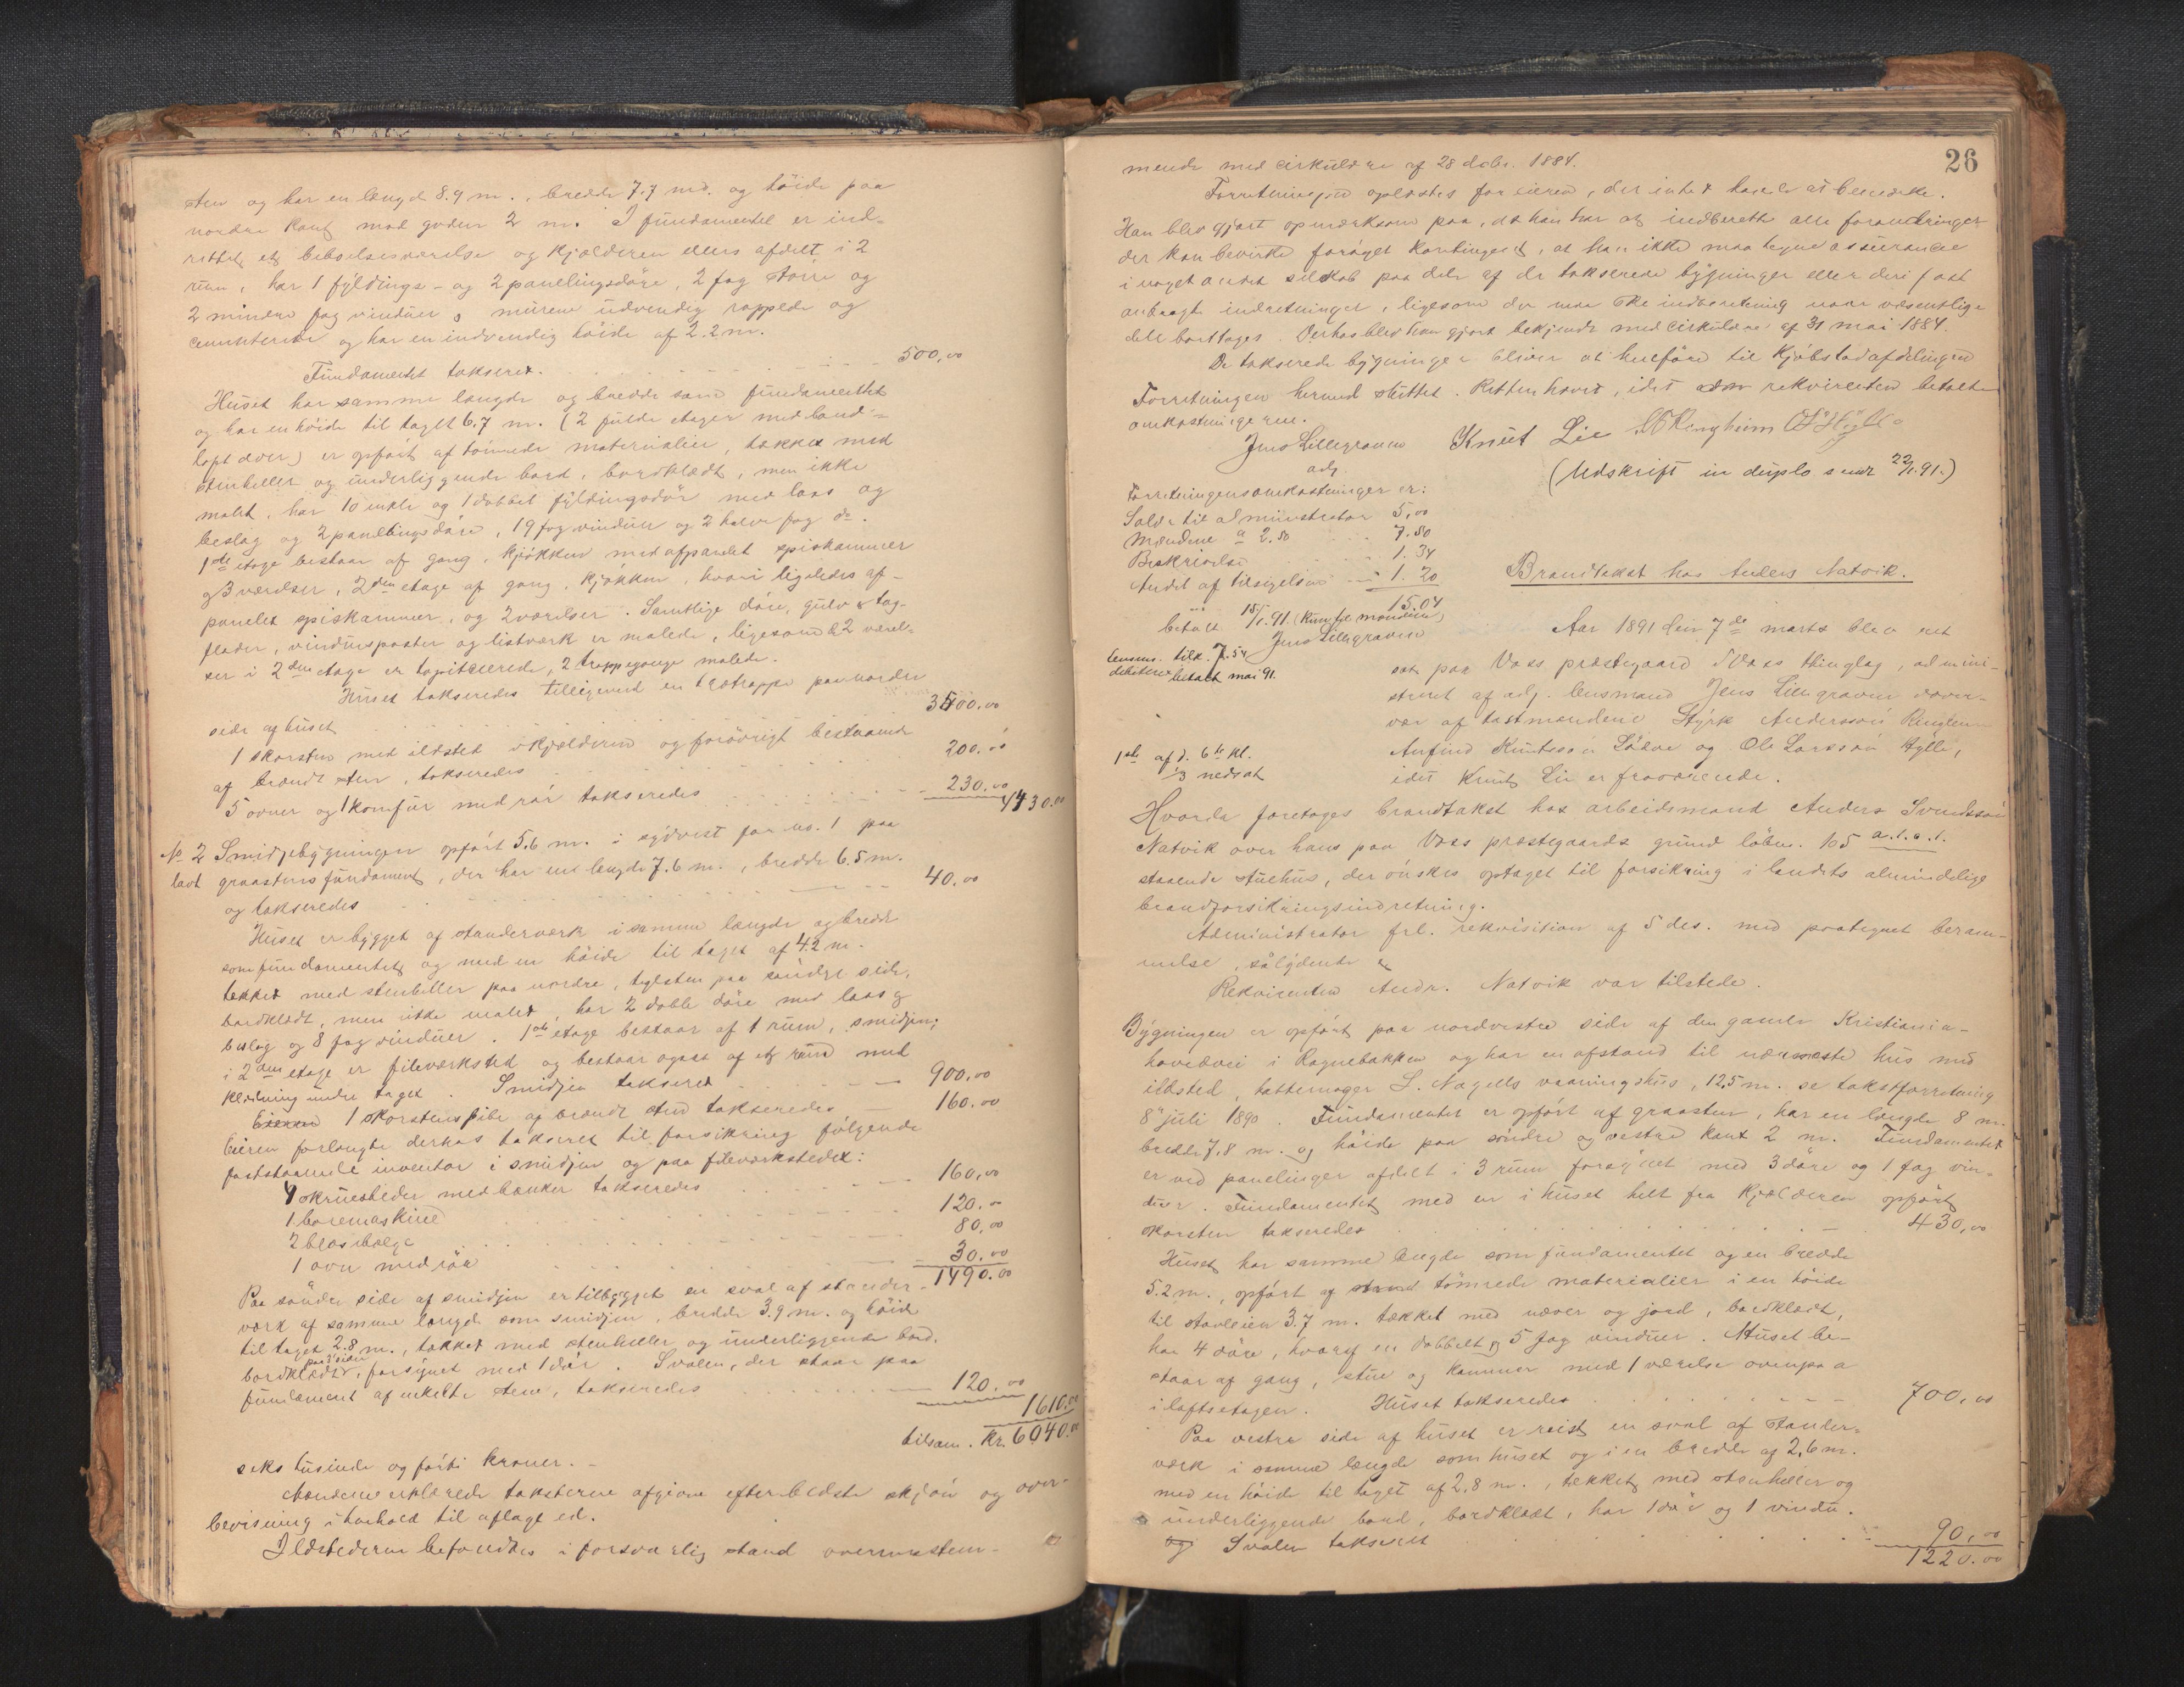 sten og har en længde 8.9 m., bredde 7.7 m. og höide paa
nordre kant mod gaden 2 m. I fundamentet er ind-
rettet et beboelsesværelse og kjælderen ellers afdelt i 2
rum, har 1 fyldings- og 2 panelingsdöre, 2 fag större og
2 mindre fag vinduer, murene udvendig rappede og
cementerede og har en indvendig höide af 2.2 m.
Fundamentet takseret. 500,00
Huset har samme længde og bredde som fundamentet
og har en höide til taget 6.7 m. (2 fulde etager med
loft over) er opfört af tömrede materialier, tækket med
stenheller og underliggende bord, bordklædt, men ikke
malet, har 10 enkle og 1 dobbel fyldingsdör med laas og
beslag og 2 panelingsdöre, 19 fag vinduer og 2 halve fag do.
1ste etage bestaar af gang, kjökken med afpanelet spiskammer
og 3 værelser, 2den etage af gang, kjökken, hvori ligeledes af-
panelet spiskammer, og 2 værelser. Samtlige döre, gulv & tag-
flader, vinduesposter og listværk er malede, ligesom 2 værel-
ser i 2den etage er tapitserede, 2 trappegange malede.
Huset takseredes tilligemed en trætrappe paa nordre
side af huset 3500.00
1 skorsten med ildsted i kjælderen og forövrigt bestaaende
af brændt sten, takseredes 200.00
5 ovner og 1 komfur med rör takseredes 230.00 4430.00
No 2 Smidjebygningen opfört 5.6 m. i sydvest for no. 1 paa
lavt graastensfundament, der har en længde 7.6 m., bredde 6.5 m.
og takseredes 40.00
Huset er bygget af stenderværk i samme længde og bredde
som fundamentet og med en höide til taget af 4.2 m.
tækket med stenheller paa nordre, teglsten paa söndre side,
bordklædt, men ikke malet, har 2 doble döre med laas og
beslag og 8 fag vinduer. 1ste etage bestaar af 1 rum, smidjen;
i 2den etage er fileværksted og bestaar ogsaa af et rum med
klædning under taget. Smidjen takseret 900.00
1 skorstenspibe af brændt sten takseredes 160.00
Eieren forlangte derhos takseret til forsikring fölgende
faststaaende inventar i smidjen og paa fileværkstedet:
4 skruesteder med bænker takseredes 160,00
1 boremaskine 120.-
2 blæsbælge 80,00
1 ovn med rör 30.00
1490.00
Paa söndre side af smidjen er tilbygget en sval af stender-
værk af samme længde som smidjen, bredde 3.9 m. og höide
til taget 2.8 m., tækket med stenheller og underliggende bord,
bordklædt, forsynet med 1 dör. Svalen, der staar paa
fundament af enkelte stene, takseredes 120.00
1610.00
tilsam. Kr. 6040.00
seks tusinde ogförti kroner.-
Mændene erklærede taksterne afgivne efter bedste skjön og over-
bevisning i henhold til aflagt ed.
Ildstederne befandtes i forsvarlig stand overensstem-
26
mende med cirkulære af 28 debr. 1884.
Forretningen oplæstes for eieren, der intet havde at bemærke.
Han blev gjort opmærksom paa, at han har at indberette alle forandringer
der kan bevirke foröget kontingent, at han ikke maa tegne assurance
i noget andet selskab paa dele af de takserede bygninger eller deri fast
anbragte indretninger, ligesom der maa ske indberetning naar væsentlige
dele borttages. Derhos blev han gjort bekjendt med cirkulære af 31 mai 1884.
De takserede bygninger bliver at henföre til Kjöbstadafdelingen
Forretningen hermed sluttet. Retten hævet, idet rekvirenten betalte
omkostningerne.
Jens Lillegraven Knut Lie Ringheim
adj.
(Udskrift in duplo sendt 22/1.91.)
Forretningens omkostninger er:
Salær til administrator 5,00
Mændene a 2.50 7.50
Beskrivelse 1.34
Andel af tilsigelsen 1.20
15.04
betalt 15/1.91. (Kun for mændene)
Jens Lillegraven
lensm. tilk. 7.54
debiteres betalt mai 91.
Brandtakst hos Anders Natvik.
Aar 1891 den 7de marts blev ret
sat paa Voss præstegaard i Voss thinglag, admini-
streret af adj. lensmand Jens Lillegraven i over-
vær af testmændene Styrk Anderssön Ringheim
Anfind Knutssön Löne og Ole Larssön Gjelle,
idet Knut Lie er fraværende.
1ste afd. 6te kl.
1/3 nedsat
Hvorda foretoges brandtakst hos arbeidsmand Anders Svendssön
Natvik over hans paa Voss præstegaards grund löben. 105 a.l.a.l.
staaende stuehus, der önskes optaget til forsikring i landets almindelige
brandforsikringsindretning.
Administrator frl. rekvisition af 5 ds. med paategnet beram-
melse, sålydende
Rekvirenten Andr. Natvik var tilstede.
Bygningen er opfört paa nordvestre side af den gamle Kristiania-
hovedvei i Rognebakken og har en afstand til nærmeste hus med
ildsted, hattemager L. Nagells vaaningshus, 12,5 m. se takstforretning
8 juli 1890. Fundamentet er opfört af graasten, har en længde 8 m.
bredde 7,8 m. og höide paa söndre og vestre kant 2 m. Fundamentet
er ved panelinger afdelt i 3 rum forsynet med 3 döre og 1 fag vin-
duer. Fundamentet med en i huset helt fra kjælderen opfört
skorsten takseredes 430,00
Huset har samme længde som fundamentet og en bredde
5.2 m., opfört af tömrede materialier i en höide
til stavleien 3.7 m. tækket med næver og jord, bordklædt,
har 4 döre, hvoraf en dobbelt og 5 fag vinduer. Huset be-
staar af gang, stue og kammer med 1 værelse ovenpaa
i loftsetagen. Huset takseredes 700,00
Paa vestre side af huset er reist en sval af stender-
værk i samme længde som huset og i en bredde af 2,6 m.
med en höide til taget af 2,8 m., tækket med stenheller og
underliggende bord, bordklædt, har 1 dör og 1 vindu.
og Svalen takseret 90,00
1220.00